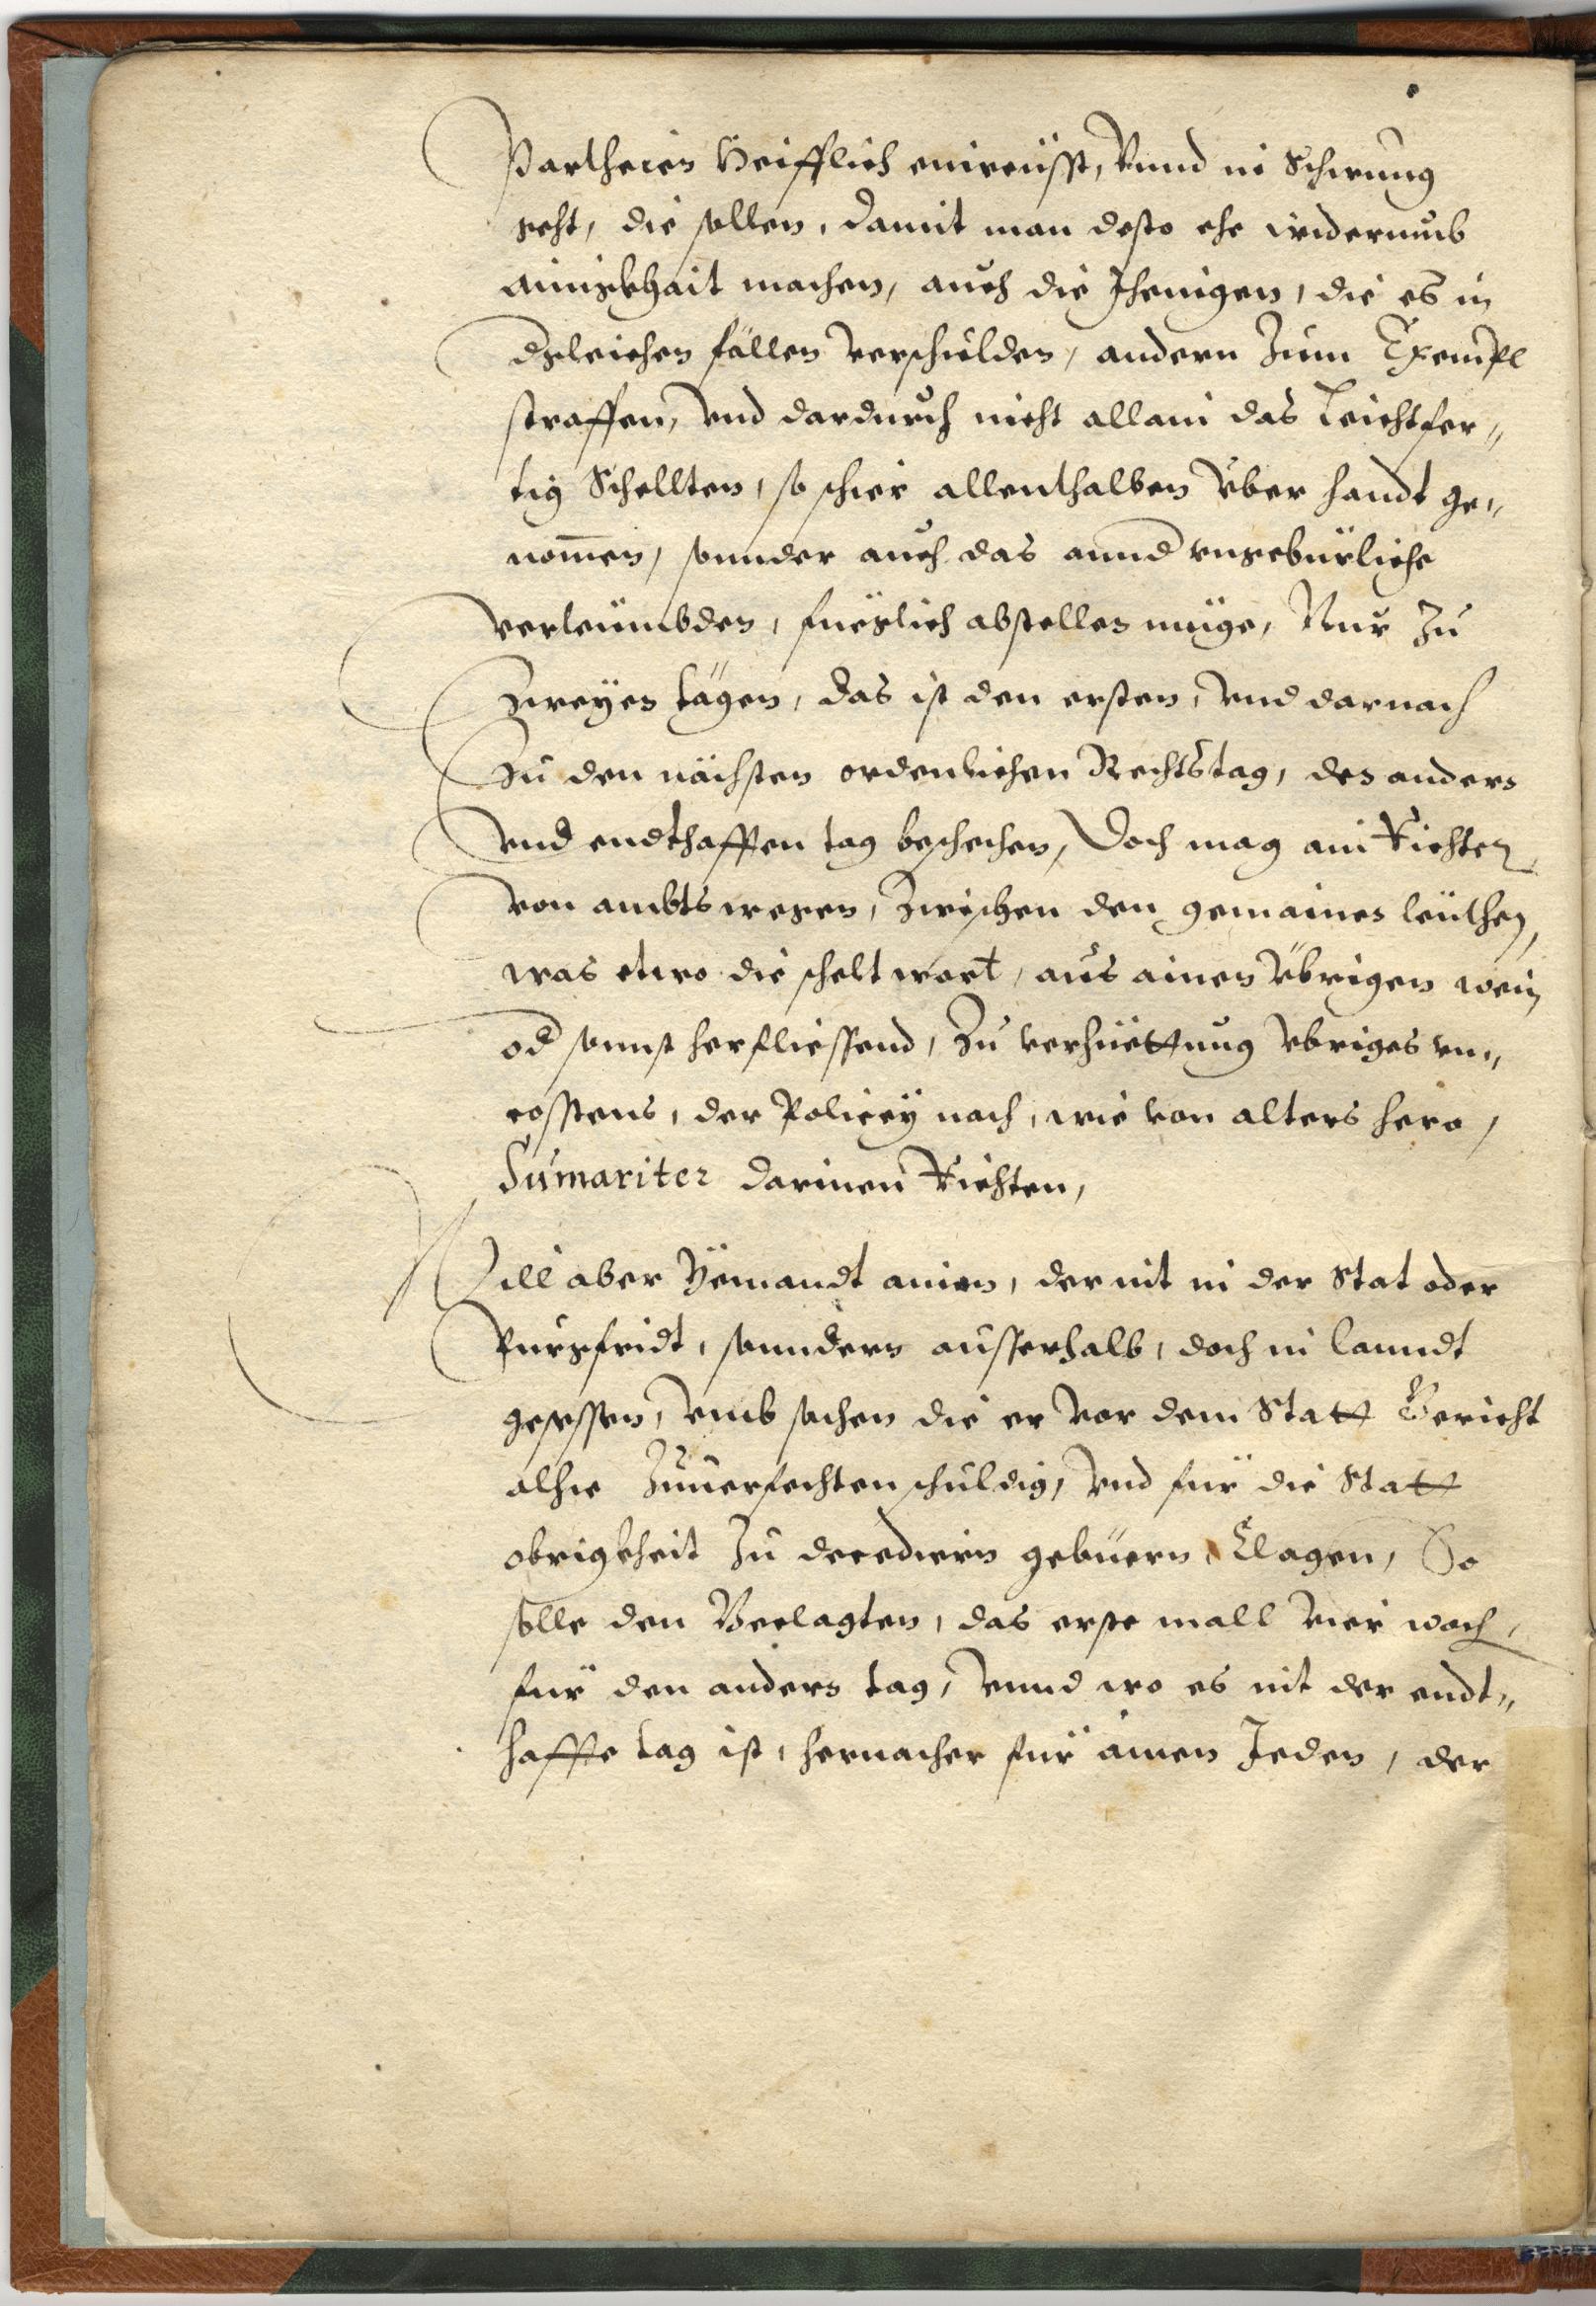 Partheien Heifflich einreüsst, Vnnd in Schwung
geht, die sollen, damit man desto ehe widerumb
ainigkhait machen, auch die Jhenigen, die es in
dergleichen fällen verschulden, andern zum Exempl
straffen, vnd dardurch nicht allain das Leichtfer„
tig Schellten, so schier allenthalben über handt ge„
nom̄en, sonnder auch das annd vngebürliche
verleümbden, füeglich abstellen müge, Nur zu
Zweÿen tägen, das ist den ersten, vnd darnach
Zu den nächsten ordenlichen Rechtstag, den andern
vnd endthafften tag beschehen, Doch mag ain Richter
von ambtswegen, zwischen den gemainen leüthen,
was etwo die scheltwort, aus ainen übrigen wein
od sonnst herfliessend, zu verhüettung übriges vn„
cosstens, der Policeÿ nach, wie von alters hero,
Sumariter darinen Richten,
Will aber Yemandt ainen, der nit in der Stat oder
Purgfridt, sonndern ausserhalb, doch in lanndt
gesessen, vmb sachen die er vor dem Statt Gericht
alhie zuuerfechten schuldig, vnd für die Statt
obrigkheit zu decediern gebüern, Clagen, So
solle den Beclagten, das erste mall vier woch,
für den andern tag, vnnd wo es nit der endt„
haffte tag ist, hernacher für ainen Jeden, der